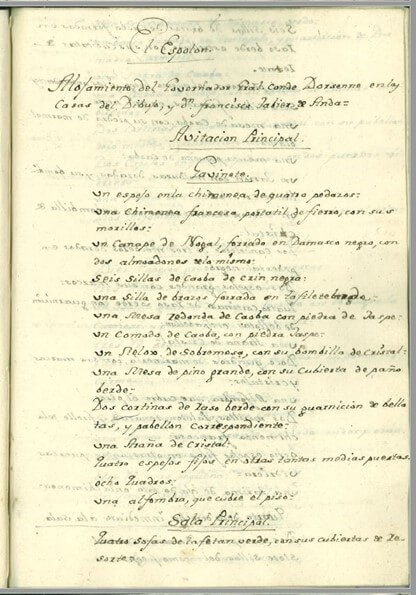 Espolon.
Alojamiento del Governador Gral. Conde Dorsenne, en las
Casas del Dibujo, y Dn. francisco Xabier de Anda=
Avitacion Principal.
Gavinete.
un espejo en la chimenea de quatro pedazos=
una Chimenea francesa, portatil de fierro, con sus
morillos=
un Canape de Nogal, forrado en Damasco negro, con
dos almoadones de lo mismo=
seis sillas de Caoba de crin negra=
una silla de brazos forrada en tafilete berde=
una Mesa redonda de Caoba con piedra de Jaspe=
un Comodo de Caoba, con piedra Jaspe=
un Relox de Sobremesa, con su bombilla de Cristal=
una Mesa de pino grande, con su Cubierta de paño
berde=
Dos cortinas de raso berde con su guarnicion de bello
tas, y pabellon Correspondiente=
una Araña de Cristal=
Quatro espejos fijos en otras tantas medias puertas=
ocho Quadros=
una alfombra, que cubre el piso=
Sala Principal.
Quatro sofas de tafetan verde, con sus cubiertas de Re-
sorte=